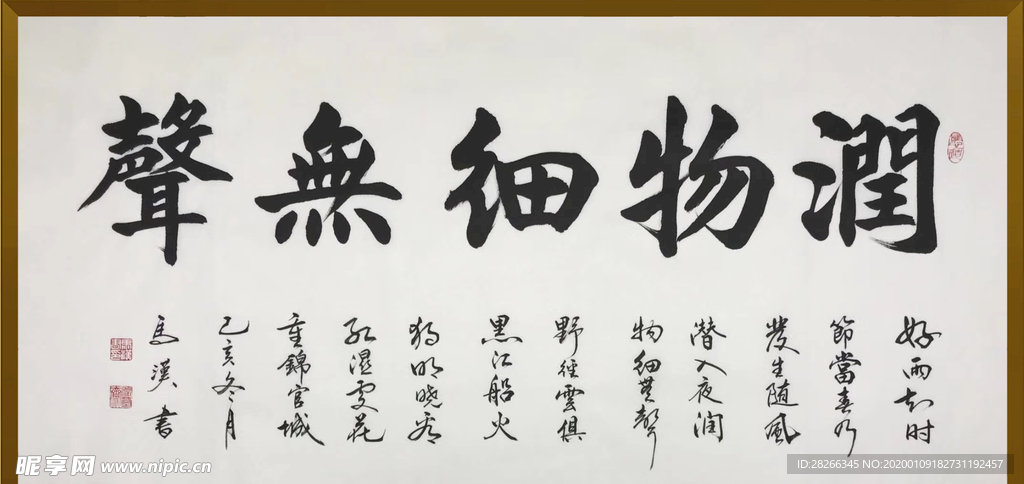 潤物細無聲
好雨知时
節當春乃
发生随風
潜入夜润
物细無聲
野径雲俱
黑江船火
獨明晓看
红湿處花
重錦官城
己亥冬月
馬漢书
昵享网 www.nipic.cn
ID:28266345 NO:20200109182731192457